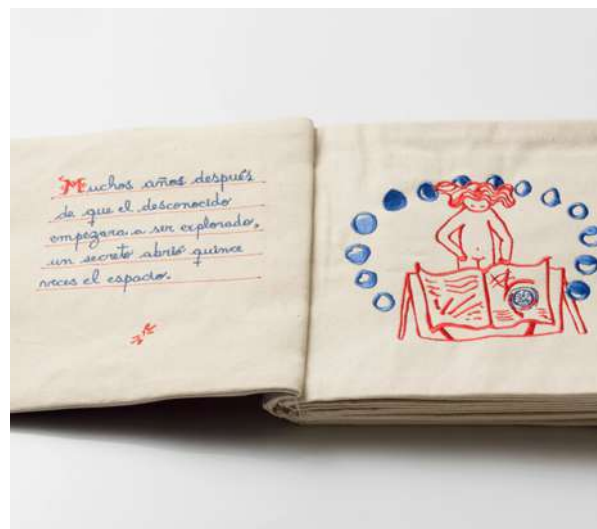 Muchos años después
de que el desconocido
empezara a ser explorado,
un secreto abrió quince
veces el espacio.